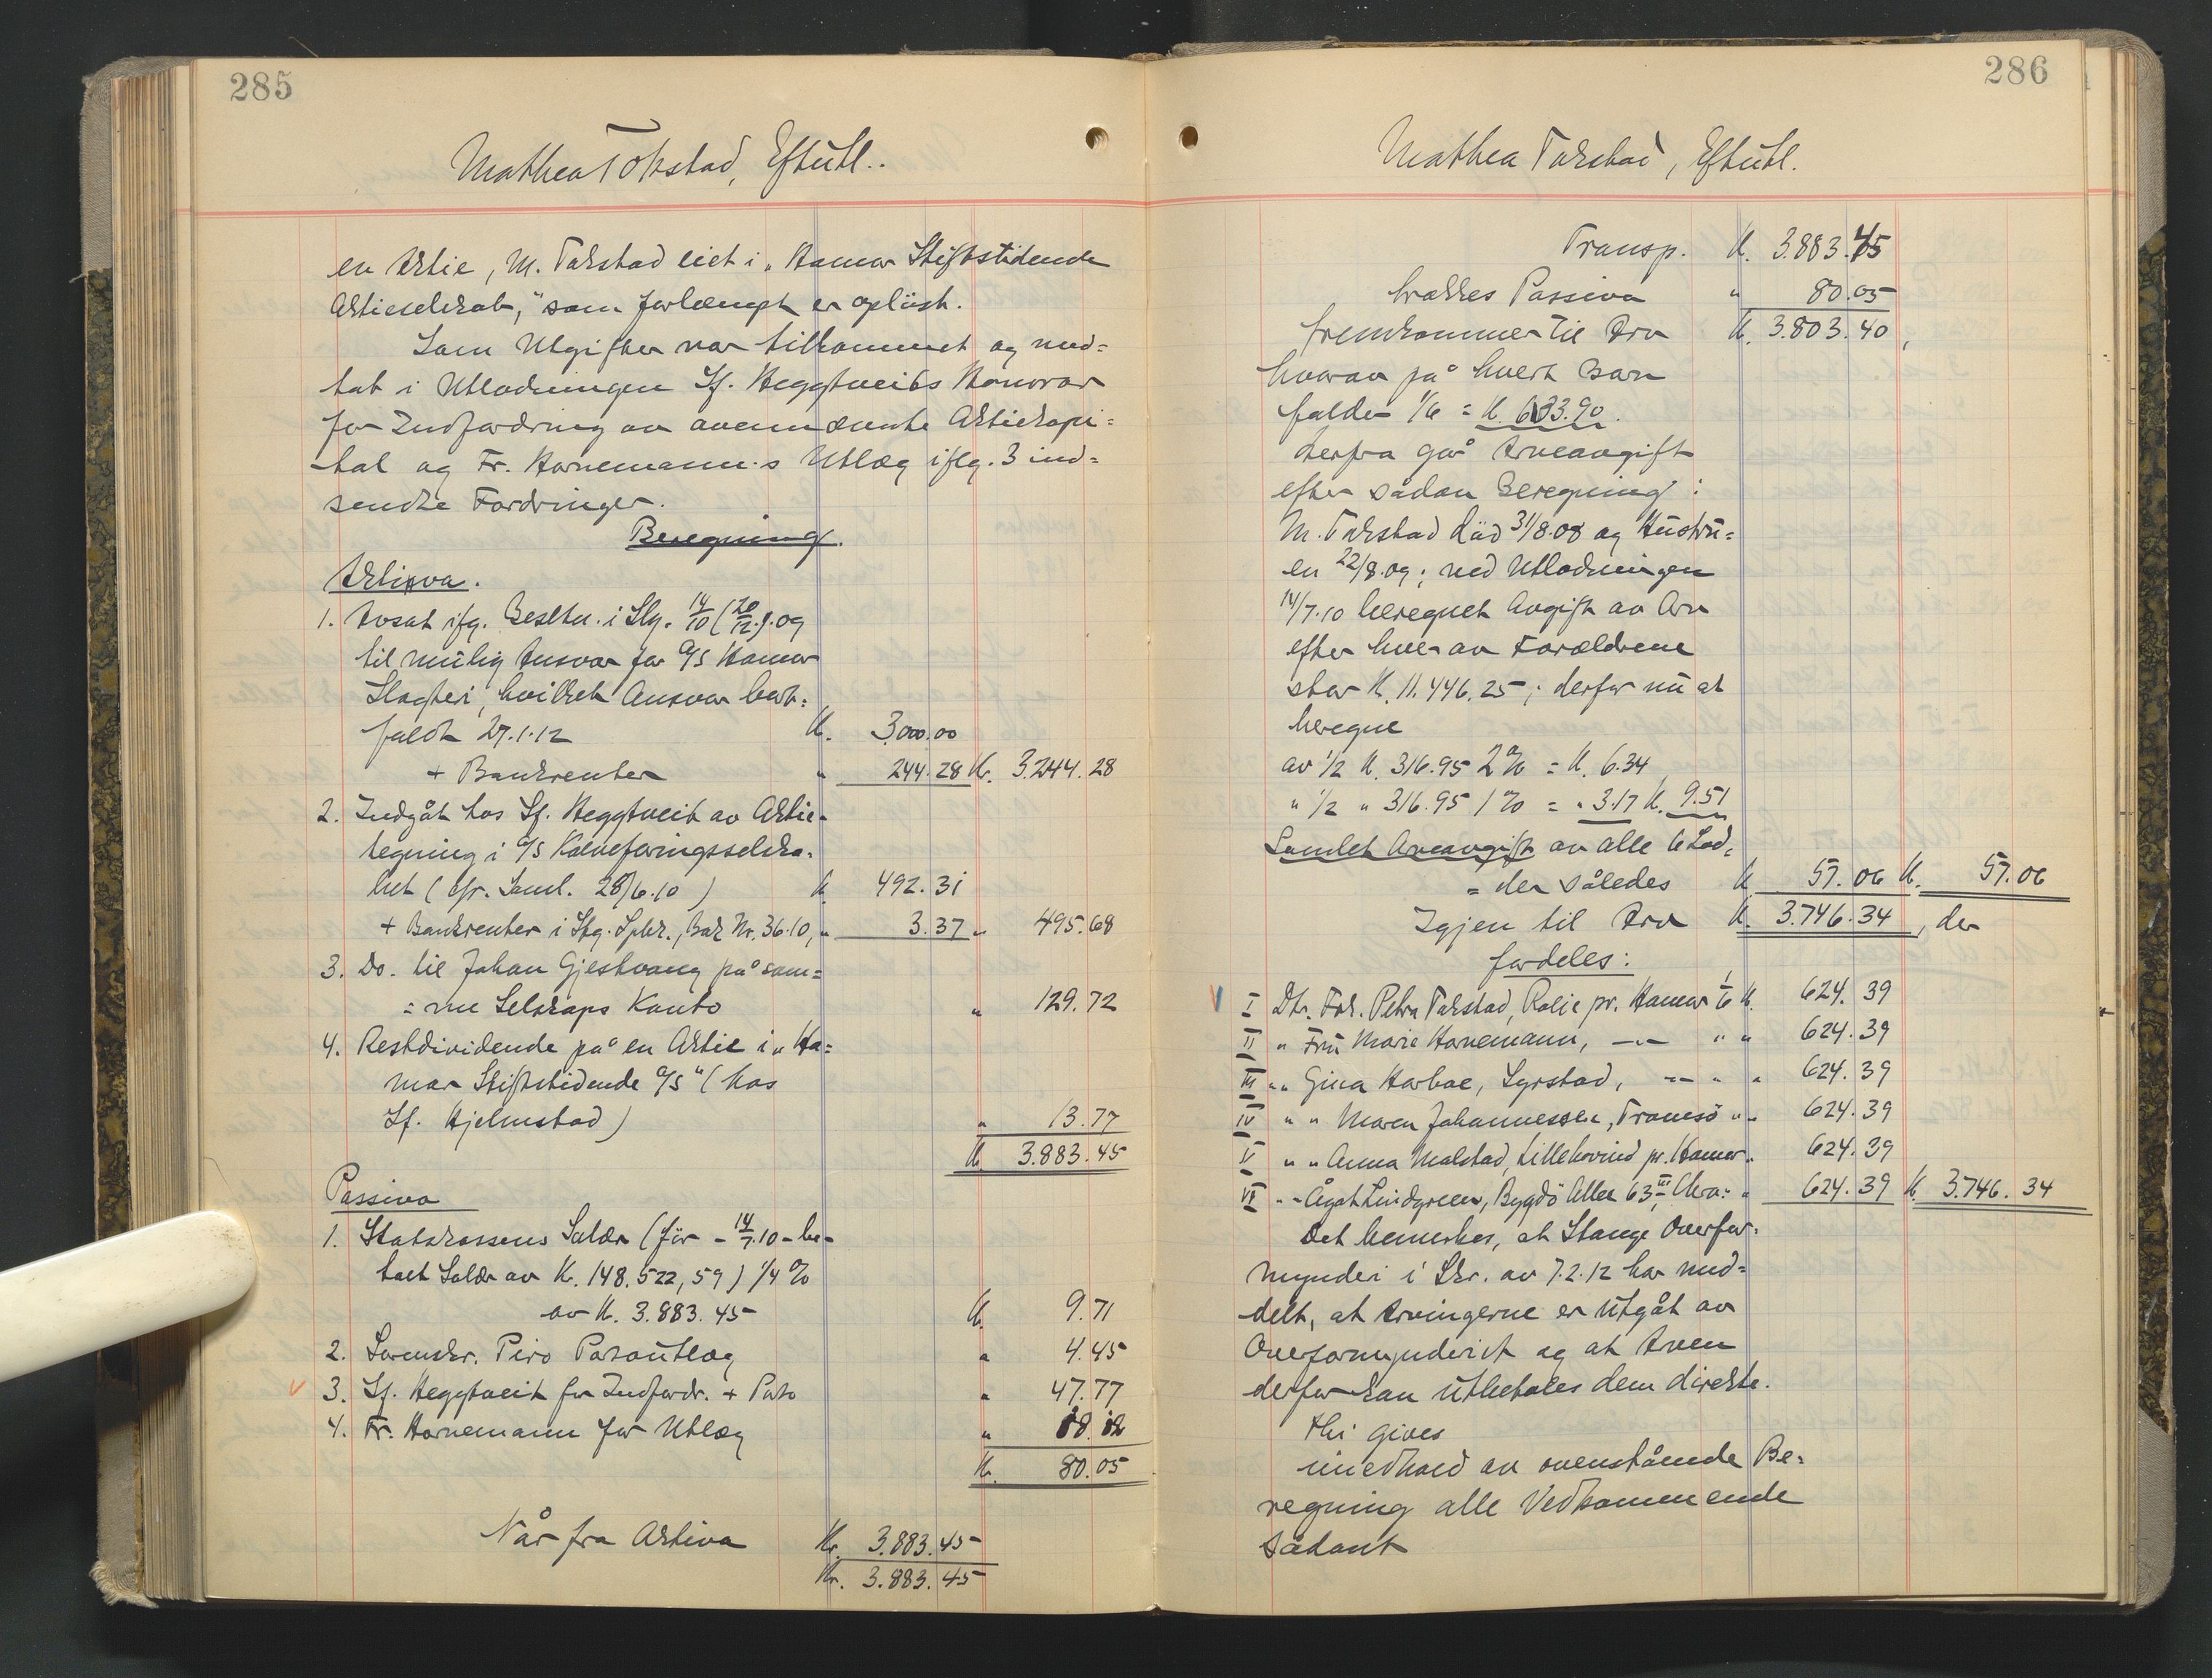 285
Mathea Tokstad, Eftutl..
en Aktie, M. Tokstad eiet i „Hamar Stiftstidende
Aktieselskab," som forlængst er opløst.
Som Utgifter var tilkommet og med=
tat i Utlodningen Sf. Heggtveits Honorar
for Indfordring av ovennævnte Aktiekapi=
tal og Fr. Hornemann.s Utlæg iflg. 3 ind=
sendte Fordringer.
Beregning.
Aktiva.
1. Avsat ifg. Besltn. i Slg. 14/10 (20/12).09
til mulig Ansvar for A/S Hamar
Slagteri, hvilket Ansvar bort=
faldt 27.1.12 K. 3000.00
+ Bankrenter " 244.28 Kr. 3.244.28
2. Indgåt hos Sf. Heggtveit av Aktie=
tegning i A/S Kalveforingsselska=
bet (cfr. Saml. 28/6.10) K. 492.31
+ Bankrenter i Stg. Spbk., Bok Nr. 36.10, " 3.37 " 495.68
3. Do. til Johan Gjestvang på sam=
= me Selskaps Konto " 129.72
4. Restdividende på en Aktie i „Ha=
mar Stiftstidende A/S" (hos
Sf. Hjelmstad) " 13.77
K. 3.883.45
Passiva
1. Statskassens Salær (før - 14/7.10 - be=
talt Salær av Kr. 148.522,59) 1/4 %
av K. 3.883.45 K. 9.71
2. Sorenskr. Piro Portoutlæg " 4.45
3. Sf. Heggtveit for Indfordr. + Porto " 47.77
4. Fr. Hornemann for Utlæg " 18.12
K. 80.05
Når fra Aktiva Kr. 3.883.45
Kr. 3.883.45
286
Mathea Tokstad, Eftutl.
Transp. K. 3.883.45
trækkes Passiva " 80.05
fremkommer til Arv K. 3.803.40,
hvorav på hvert Barn
falder 1/6 = K. 633.90.
Herfra går Arveavgift
efter sådan Beregning:
M. Tokstad død 31/8.08 og Hustru=
en 22/8.09; ved Utlodningen
14/7.10 beregnet Avgift av Arv
efter hver av Forældrene
stor K. 11.446.25; derfor nu at
beregne
av 1/2 K. 316.95 2% = K. 6.34
" 1/2 " 316.95 1% = " 3.17 K. 9.51
Samlet Arveavgift av alle 6 Lod=
= der således K. 57.06 K. 57.06
Igjen til Arv K. 3.746.34, der
fordeles:
I Dtr. Frk. Petra Tokstad, Rolie pr. Hamar 1/6 K. 624.39
II " Fru Marie Hornemann, —"— " " 624.39
III " " Gina Horboe, Syrstad, —"— " " 624.39
IV " " Maren Johannessen, Tromsö " " 624.39
V " " Anna Molstad, Lillehovind pr. Hamar " 624.39
VI " " Ågot Lindgreen, Bygdö Allee 63 III, Chra. " 624.39 K. 3.746.34
Det bemerkes, at Stange Overfor=
mynderi i Skr. av 7.2.12 har med=
delt, at Arvingerne er utgåt av
Overformynderiet og at Arven
derfor kan utbetales dem direkte.
thi gives
i medhold av ovenstående Be=
regning alle Vedkommende
sådant